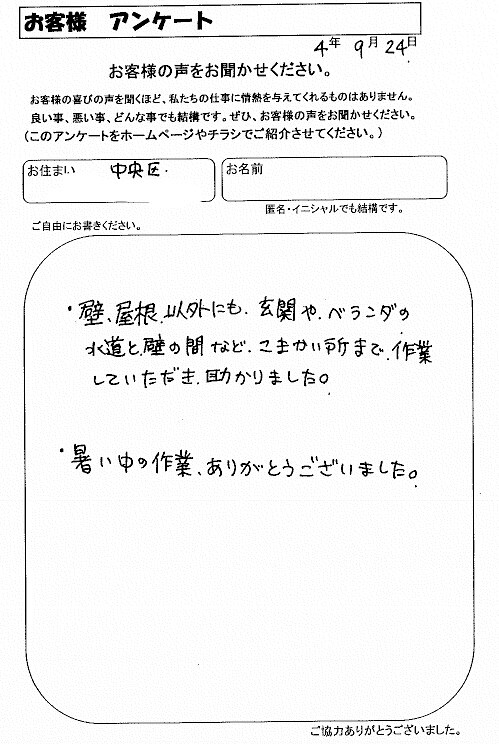 お客様 アンケート
4年 9月 24日
お客様の声をお聞かせください。
お客様の喜びの声を聞くほど、私たちの仕事に情熱を与えてくれるものはありません。
良い事、悪い事、どんな事でも結構です。ぜひ、お客様の声をお聞かせください。
(このアンケートをホームページやチラシでご紹介させてください。)
お住まい 中央区 お名前
匿名・イニシャルでも結構です。
ご自由にお書きください。
・壁、屋根、以外にも、玄関や、ベランダの
水道と、壁の間など、こまかい所まで、作業
していただき、助かりました。
・暑い中の作業、ありがとうございました。
ご協力ありがとうございました。